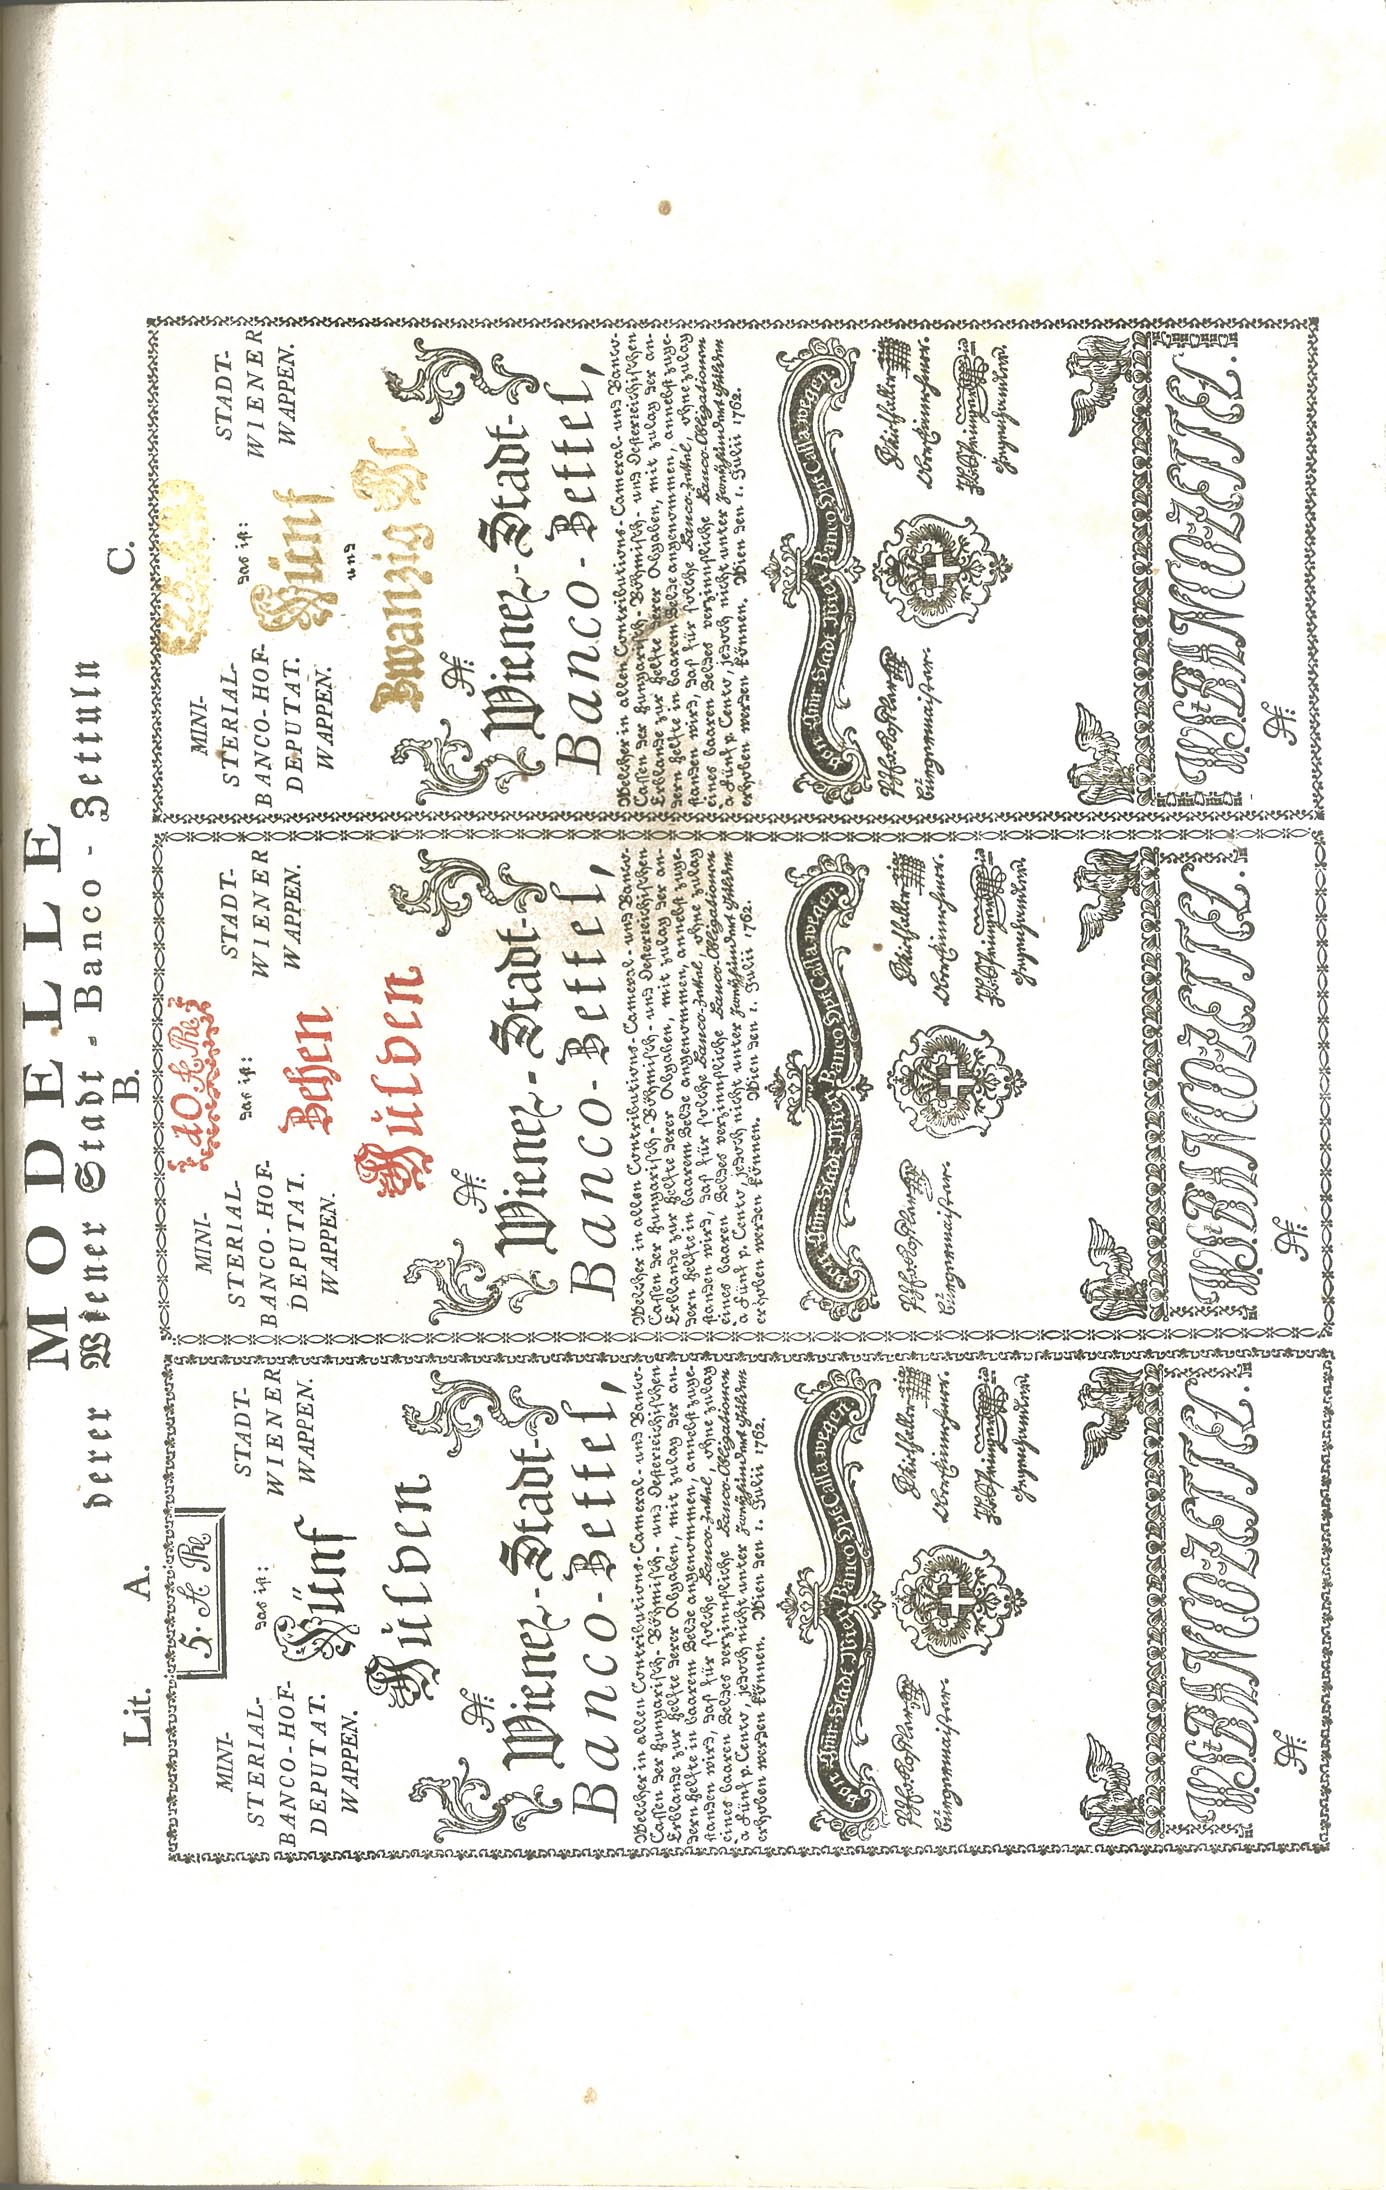 MODELLE
derer Wiener Stadt - Banco - Zettuln
Lit. A.
5.
das ist:
MINI-
STERIAL-
BANCO-HOF-
DEPUTAT.
WAPPEN.
STADT-
WIENER
WAPPEN.
Fünf
Gulden
Wiener-Stadt-
Banco-Zettel,
Welcher in allen Contributions-Cameral- und Banco-
Cassen der Hungarisch-Böhmisch- und Oesterreichischen
Erblande zur Helfte derer Abgaben, mit Zulag der an-
dern Helfte in baarem Gelde angenommen, annebst zuge-
standen wird, daß für solche Banco-Zettel, ohne Zulag
eines baaren Geldes verzinnßliche Banco-Obligationen
à Fünf p. Cento, jedoch nicht unter Zweyhundert Gulden
erhoben werden können. Wien den 1. Julii 1762.
Von Gmr. Stadt Wien Banco Spt Cassa wegen
Burgermeister
Oberkeinnehmer.
Gegenhandler.
WR: N: BO: ZETTL.
B.
10
das ist:
MINI-
STERIAL-
BANCO-HOF-
DEPUTAT.
WAPPEN.
STADT-
WIENER
WAPPEN.
Zehen
Gulden
Wiener-Stadt-
Banco-Zettel,
Welcher in allen Contributions-Cameral- und Banco-
Cassen der Hungarisch-Böhmisch- und Oesterreichischen
Erblande zur Helfte derer Abgaben, mit Zulag der an-
dern Helfte in baarem Gelde angenommen, annebst zuge-
standen wird, daß für solche Banco-Zettel, ohne Zulag
eines baaren Geldes verzinnßliche Banco-Obligationen
à Fünf p. Cento, jedoch nicht unter Zweyhundert Gulden
erhoben werden können. Wien den 1. Julii 1762.
Von Gmr. Stadt Wien Banco Spt Cassa wegen
Burgermeister
Oberkeinnehmer.
Gegenhandler.
WR: N: BO: ZETTL.
C.
25
das ist:
MINI-
STERIAL-
BANCO-HOF-
DEPUTAT.
WAPPEN.
STADT-
WIENER
WAPPEN.
Fünf
und
Zwanzig
Wiener-Stadt-
Banco-Zettel,
Welcher in allen Contributions-Cameral- und Banco-
Cassen der Hungarisch-Böhmisch- und Oesterreichischen
Erblande zur Helfte derer Abgaben, mit Zulag der an-
dern Helfte in baarem Gelde angenommen, annebst zuge-
standen wird, daß für solche Banco-Zettel, ohne Zulag
eines baaren Geldes verzinnßliche Banco-Obligationen
à Fünf p. Cento, jedoch nicht unter Zweyhundert Gulden
erhoben werden können. Wien den 1. Julii 1762.
Von Gmr. Stadt Wien Banco Spt Cassa wegen
Burgermeister
Oberkeinnehmer.
Gegenhandler.
WR: N: BO: ZETTL.